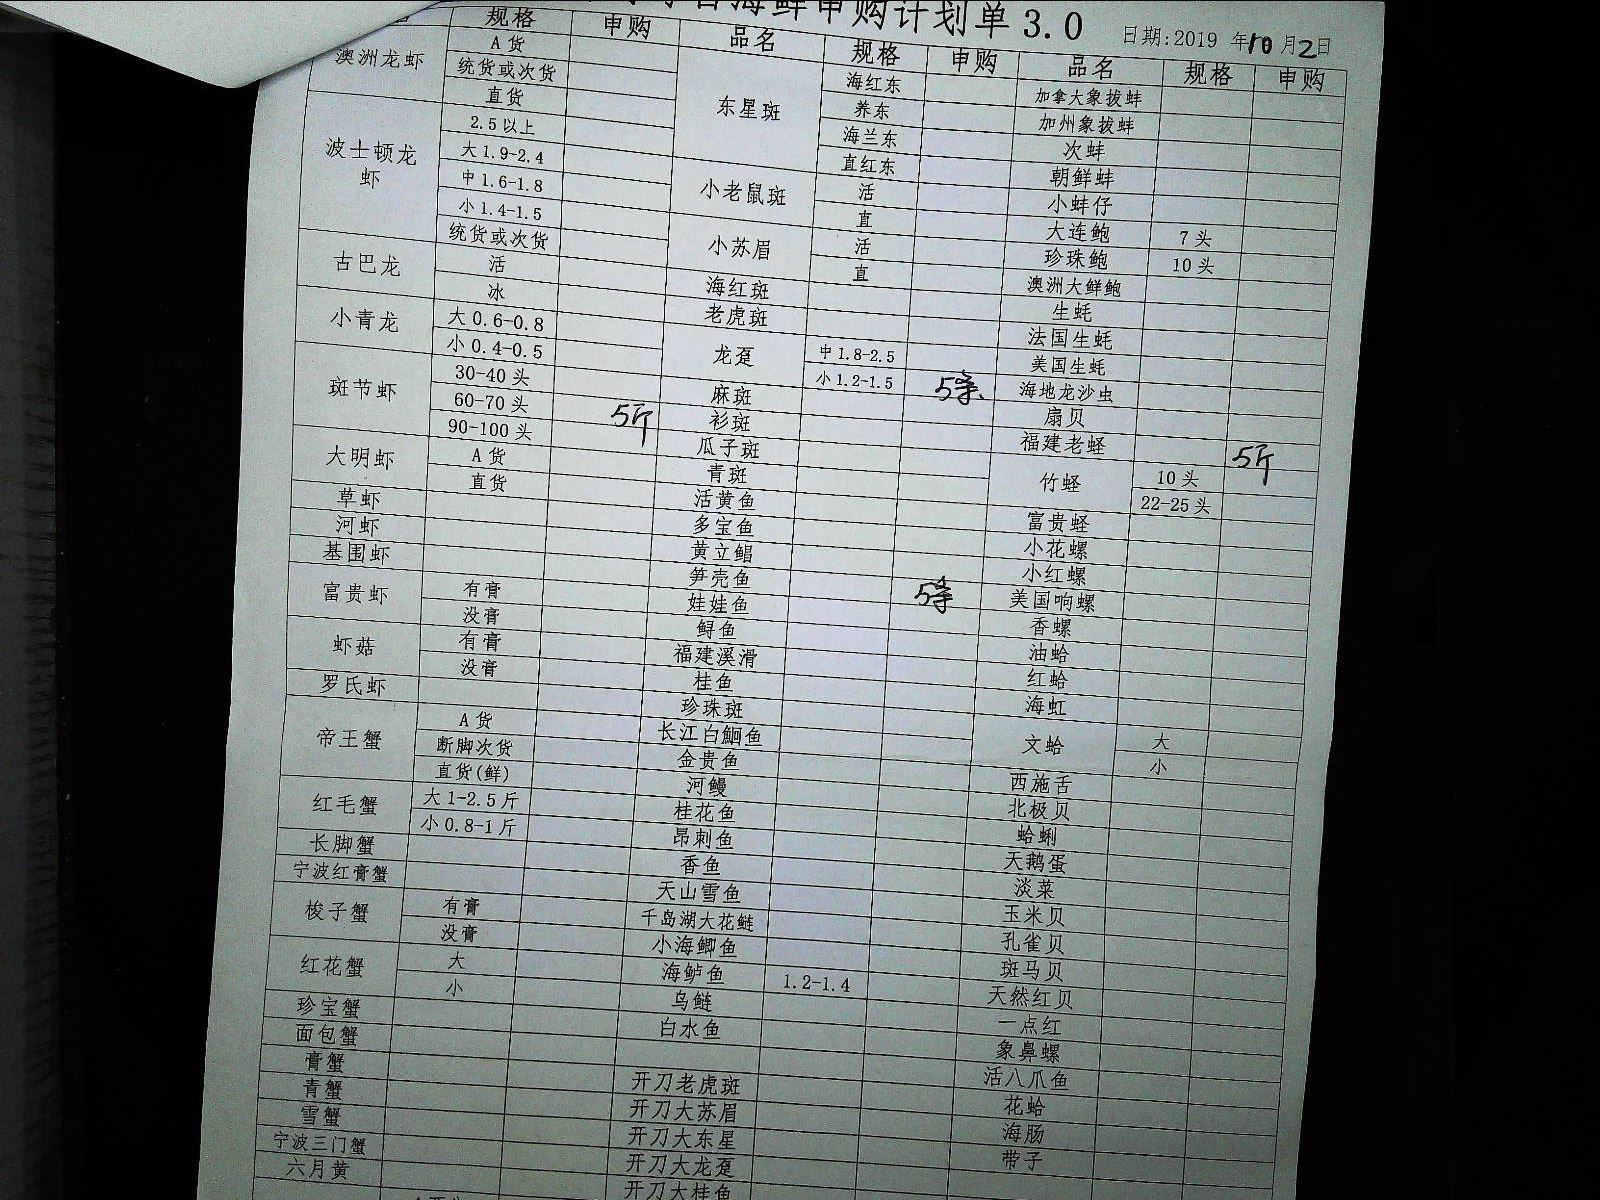 海鲜申购计划单3.0
日期:2019 年10月2日
规格 申购
澳洲龙虾 A货
统货或次货
直货
波士顿龙虾 2.5以上
大1.9-2.4
中1.6-1.8
小1.4-1.5
统货或次货
古巴龙 活
冰
小青龙 大0.6-0.8
小0.4-0.5
斑节虾 30-40头
60-70头 5斤
90-100头
大明虾 A货
直货
草虾
河虾
基围虾
富贵虾 有膏
没膏
虾菇 有膏
没膏
罗氏虾
帝王蟹 A货
断脚次货
直货(鲜)
红毛蟹 大1-2.5斤
小0.8-1斤
长脚蟹
宁波红膏蟹
梭子蟹 有膏
没膏
红花蟹 大
小
珍宝蟹
面包蟹
膏蟹
青蟹
雪蟹
宁波三门蟹
六月黄
品名 规格 申购
东星斑 海红东
养东
海兰东
直红东
小老鼠斑 活
直
小苏眉 活
直
海红斑
老虎斑
龙趸 中1.8-2.5
小1.2-1.5 5条
麻斑
衫斑
瓜子斑
青斑
活黄鱼
多宝鱼
黄立鲳
笋壳鱼 5条
娃娃鱼
鲟鱼
福建溪滑
桂鱼
珍珠斑
长江白鮰鱼
金贵鱼
河鳗
桂花鱼
昂刺鱼
香鱼
天山雪鱼
千岛湖大花鲢
小海鲫鱼
海鲈鱼 1.2-1.4
乌鲢
白水鱼
开刀老虎斑
开刀大苏眉
开刀大东星
开刀大龙趸
开刀大桂鱼
品名 规格 申购
加拿大象拔蚌
加州象拔蚌
次蚌
朝鲜蚌
小蚌仔
大连鲍 7头
珍珠鲍 10头
澳洲大鲜鲍
生蚝
法国生蚝
美国生蚝
海地龙沙虫
扇贝
福建老蛏 5斤
竹蛏 10头
22-25头
富贵蛏
小花螺
小红螺
美国响螺
香螺
油蛤
红蛤
海虹
文蛤 大
小
西施舌
北极贝
蛤蜊
天鹅蛋
淡菜
玉米贝
孔雀贝
斑马贝
天然红贝
一点红
象鼻螺
活八爪鱼
花蛤
海肠
带子